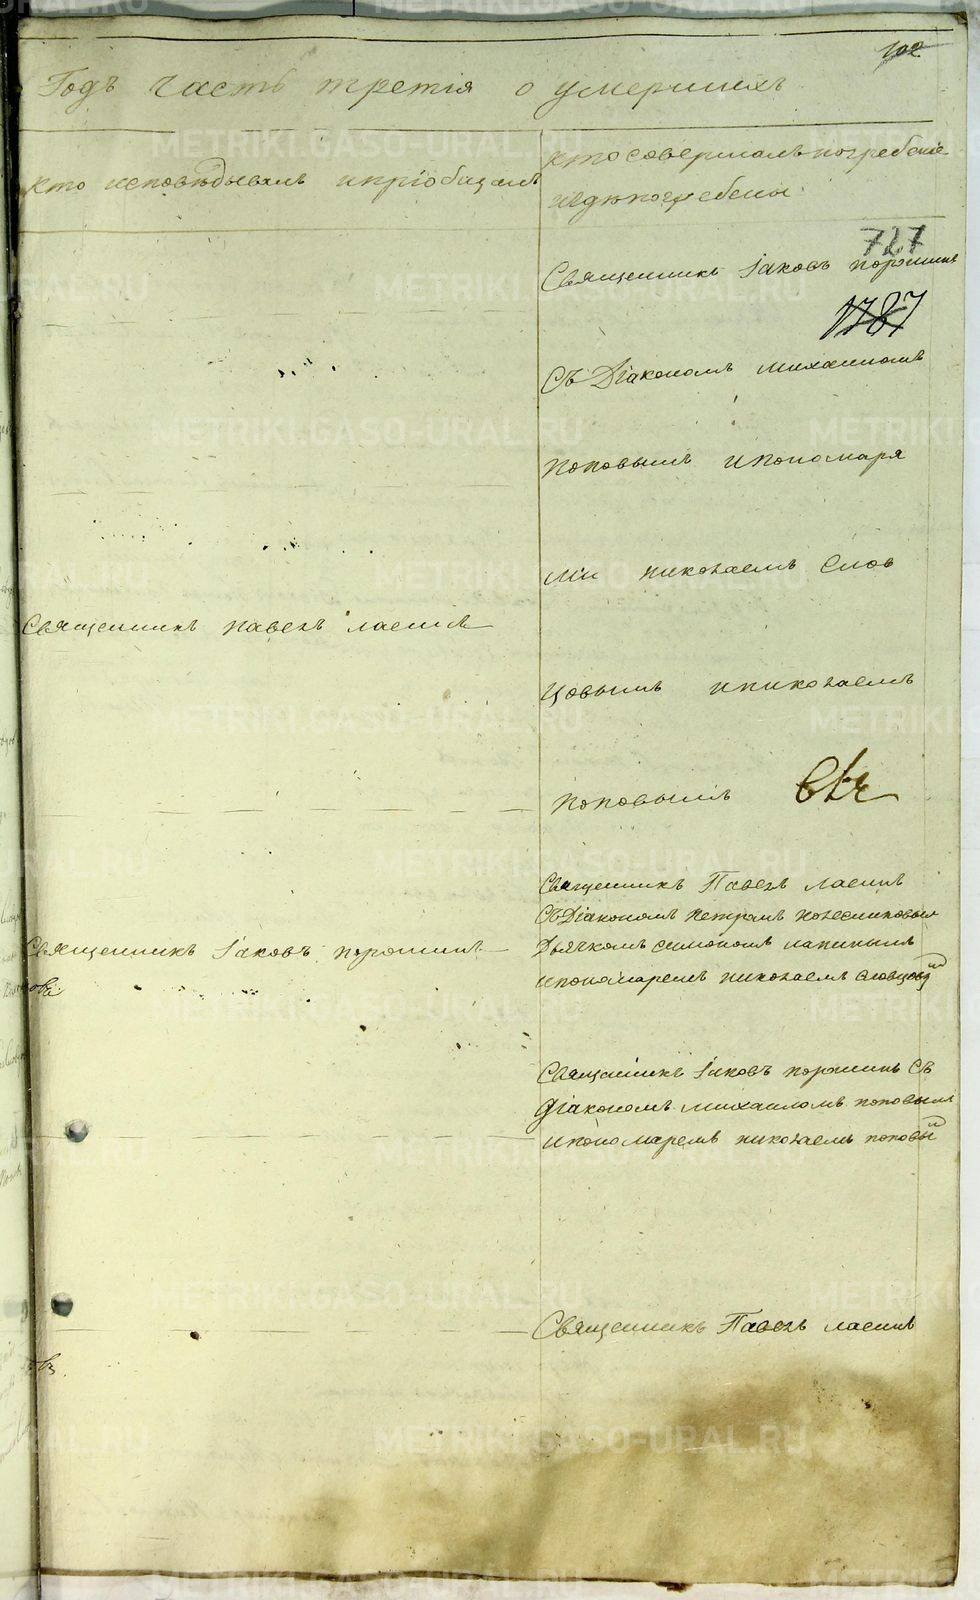 102
Годъ часть третія о умершихъ
кто исповѣдывалъ ипріобщалъ
кто совершалъ погребеніе
игдѣ погребены
727
Священникъ Іаковъ порошинъ
1787
Съ Діакономъ михаиломъ
поповымъ ипономаря
ми николаемъ Слов
Священникъ павелъ ласинъ
цовымъ иниколаемъ
поповымъ
Священникъ Павелъ ласинъ
Съ Діакономъ петромъ колесниковым
Дьячкомъ симономъ лапинымъ
Священникъ Іаковъ порошинъ
ипономаремъ николаемъ словцовы
Священникъ Іаковъ порошинъ Съ
Діакономъ михаиломъ поповымъ
ипономаремъ николаемъ поповы
Священникъ Павелъ ласинъ
METRIKI.GASO-URAL.RU